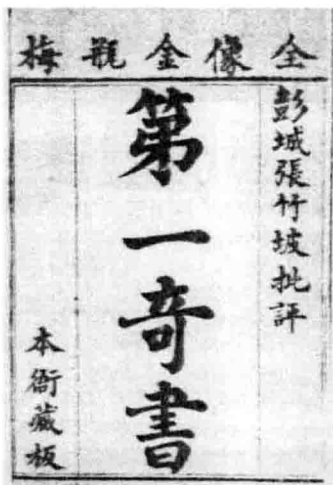 全像金瓶梅
彭城張竹坡批評
第一奇書
本衙藏板